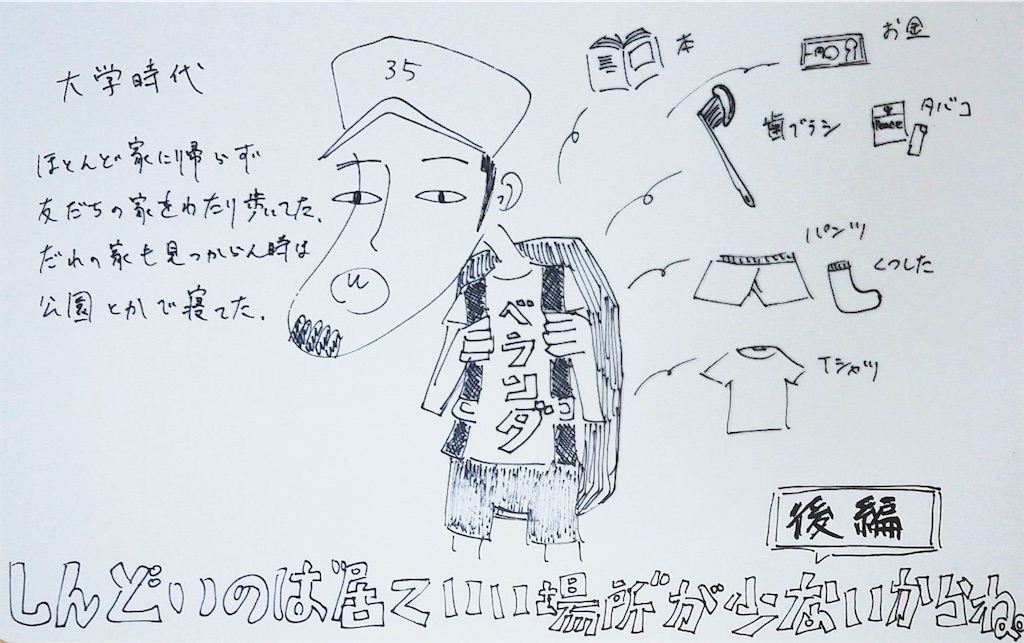 大学時代
ほとんど家に帰らず
友だちの家をわたり歩いてた。
だれの家も見つからん時は
公園とかで寝てた。
35
ベランダ
本
お金
歯ブラシ
タバコ
Peace
パンツ
くつした
Tシャツ
後編
しんどいのは居ていい場所が少ないからね。